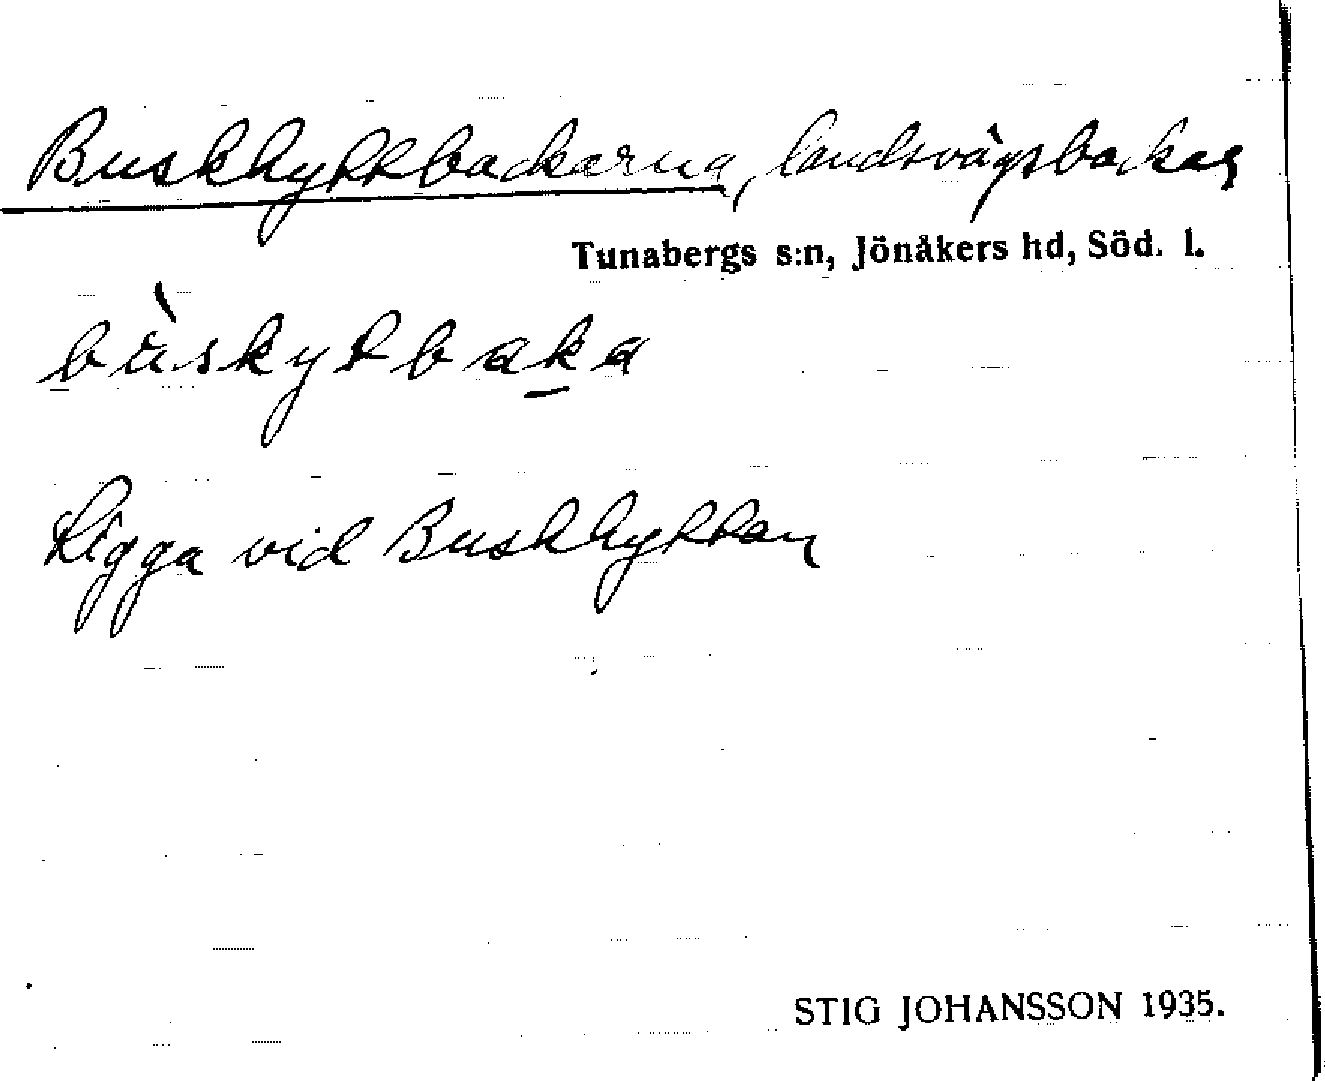 Buskhyttbackarna, landsvägsbackar
Tunabergs s:n, Jönåkers hd, Söd. l.
bùskytbaka
Ligga vid Buskhyttan
STIG JOHANSSON 1935.